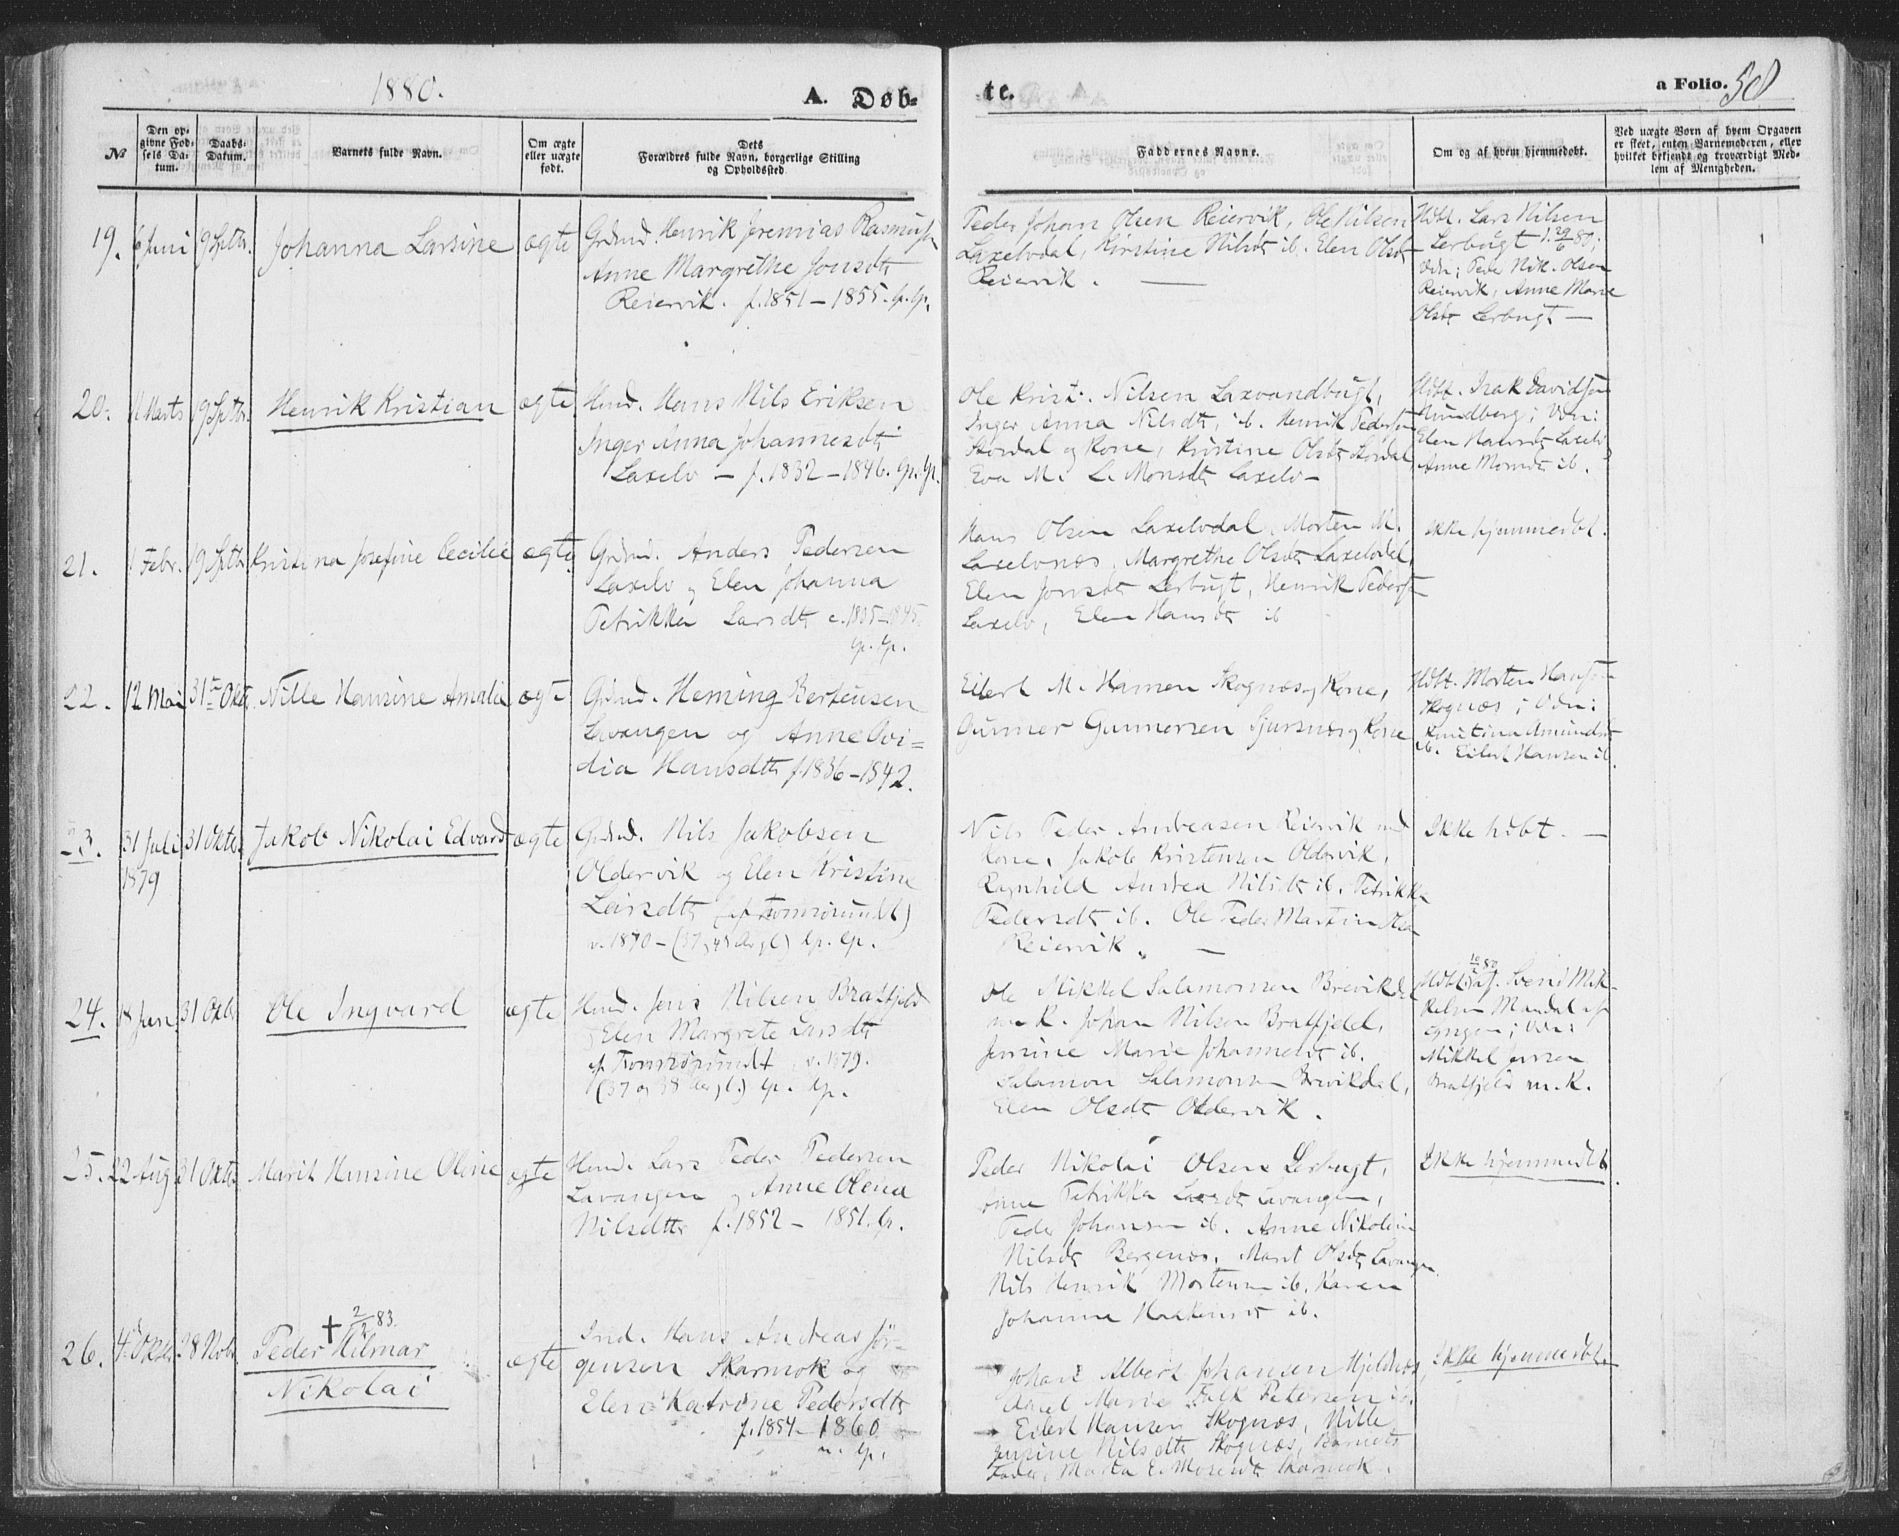 1880.
A. Døb-
te.
a Folio. 50
№
Den op-
givne Fød-
sels Da-
tum.
Daabs-
Datum.
Barnets fulde Navn.
Om ægte
eller uægte
født.
Dets
Forældres fulde Navn, borgerlige Stilling
og Opholdssted
Faddernes Navne.
Om og af hvem hjemmedøbt.
Ved uægte Børn af hvem Opgaven
er skeet, enten Barnemoderen, eller
hvilket bekjendt og troværdigt Med-
lem af Menigheden.
19. 6 Juni 19 Septbr. Johanna Larsine ægte
Grdmd. Henrik Jeremias Rasmuss.
Anne Margrethe Jonsdtr
Reiervik. f. 1851 – 1855. lp. lp.
Peder Johan Olsen Reiervik, Ole Nilsen
Laxelvdal, Kirstine Nilsdtr ib. Elen Olsdtr
Reiervik. —
Hdbt. Lars Nilsen
Lerbugt 1. 29/6 80;
Vdn; Peder Nik. Olsen
Reiervik, Anne Marie
Olsdtr Lerbugt —
20. 11 Marts 19 Septbr. Henrik Kristian ægte
Hmd. Hans Nils Eriksen
Inger Anna Johannesdtr
Laxelv – f. 1832 – 1846. lp. lp.
Ole Krist. Nilsen Laxvandbugt,
Inger Anna Nilsdtr, ib. Henrik Pedersen
Stordal og Kone, Kirstine Olsdtr Stordal
Eva M. L. Monsdtr Laxelv –
Hdbt. Isak Davidsen
Nundberg; Vdn:
Elen Hansdtr Laxelv
Anne Monsdtr ib.
21. 1 Febr. 19 Septbr Kristina Josefine Cecilie ægte
Grdmd. Anders Pedersen
Laxelv og Elen Johanna
Petrikka Larsdtr c. 1835–1845.
lp. lp.
Hans Olsen Laxelvdal, Morten M.
Laxelvnæs, Margrethe Olsdtr Laxelvdal,
Elen Jonsdtr Lerbugt, Henrik Peders.
Laxelv, Elen Hansdtr ib
Ikke hjemmedbt.
22. 12 Mai 31te Oktr. Nille Hansine Amalie ægte
Grdmd. Heming Berteusen
Lavangen og Anne Ovi=
dia Hansdtr f. 1836 – 1842.
Eilert M. Hansen Skognæs og Kone,
Gunner Gunnersen Sjursnæs og Kone
Hdbt. Morten Hansen
Skognæs; Vdn:
Kristina Amundsdtr
ib. Eilert Hansen ib.
23. 31 Juli 1879 31 Oktbr. Jakob Nikolai Edvard ægte
Grdmd. Nils Jakobsen
Oldervik og Elen Kristine
Larsdtr (af Tromsøsundet)
v. 1870 – (37, 43 Aar gl.) lp. lp.
Nils Peder Andreasen Reiervik med
Kone, Jakob Kristensen Oldervik,
Ragnhild Andrea Nilsdtr ib. Petrikka
Pedersdtr ib. Ole Peder Martin Olsen
Reiervik. —
Ikke hdbt. —
24. 18 Jan 31 Oktbr Ole Ingvard ægte
Hmd. Jens Nilsen Bratfjeld
Elen Margrete Larsdtr
af Tromsøsundet, v. 1879.
(37 og 38 Aar gl.) lp. lp.
Ole Mikkel Salamonsen Breivikdal
m. K. Johan Nilsen Bratfjeld,
Jensine Marie Johannesdtr ib.
Salamon Salamonsen Breivikdal,
Elen Olsdtr Oldervik.
Mikkel Jensen
Bratfjeld m. K.
25. 22 Aug 31 Oktbr Marit Hansine Oline ægte
Hmd. Lars Peder Pedersen
Lavangen og Anne Olena
Nilsdtr f. 1852 – 1851. lp.
Peder Nikolai Olsen Lerbugt,
Anne Petrikka Larsdtr Lavangen,
Peder Johansen ib. Anne Nikoline
Nilsdtr Bergenæs, Marit Olsdtr Lavangen
Nils Henrik Mortensen ib. Karen
Johanne Haakensdtr ib.
Ikke hjemmedbt
26. 4 Oktbr. 28 Novbr
† 2/2 83.
Peder Hilmar
Nikolai
ægte
Ind. Hans Andreas Jør-
gensen Skarmok og
Elen Katrine Pedersdtr
f. 1854 – 1860
n. lp.
Johan Albert Johansen Hjeldnes,
Marie Falk Petersen ib.
Eilert Hansen Skognæs, Nille
Jensine Nilsdtr Skognæs, Barnets
Fader, Marta E. Monsdtr Skarmok.
Ikke hjemmedbt.